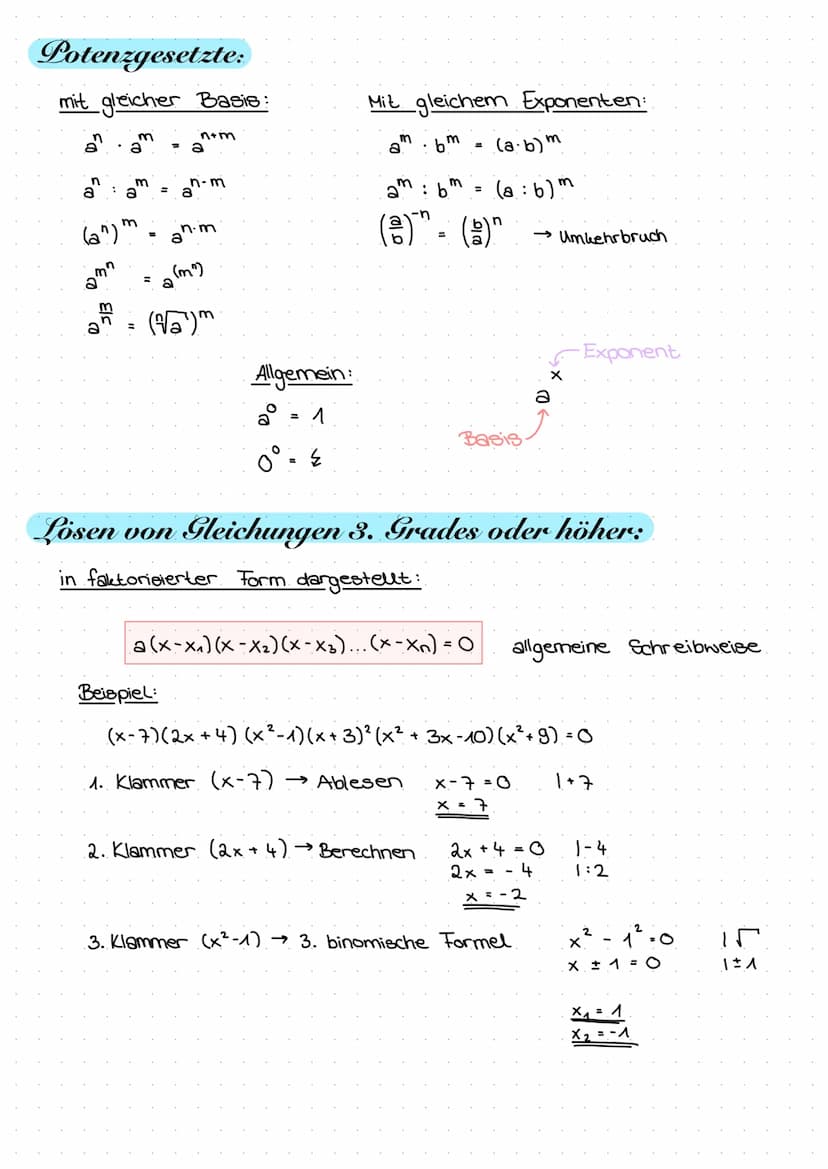 Potenzgesetzte:
mit gleicher Basis:
aⁿ · aᵐ = aⁿ⁺ᵐ
aⁿ : aᵐ = aⁿ⁻ᵐ
(aⁿ)ᵐ = aⁿ·ᵐ
a^m^n = a^(mⁿ)
a^(m/n) = (ⁿ√a)ᵐ
Mit gleichem Exponenten:
aᵐ · bᵐ = (a·b)ᵐ
aᵐ : bᵐ = (a : b)ᵐ
(a/b)⁻ⁿ = (b/a)ⁿ → Umkehrbruch
Allgemein:
a⁰ = 1
0⁰ = ↯
Exponent
aˣ
Basis
Lösen von Gleichungen 3. Grades oder höher:
in faktorisierter Form dargestellt:
a(x-x₁)(x-x₂)(x-x₃)...(x-xₙ) = 0 allgemeine Schreibweise
Beispiel:
(x-7)(2x+4)(x²-1)(x+3)²(x² + 3x-10)(x²+9) = 0
1. Klammer (x-7) → Ablesen x-7 = 0 |+7
x = 7
2. Klammer (2x+4) → Berechnen 2x + 4 = 0 |-4
2x = -4 |:2
x = -2
3. Klammer (x²-1) → 3. binomische Formel x² - 1² = 0 |√
x ± 1 = 0 |±1
x₁ = 1
x₂ = -1